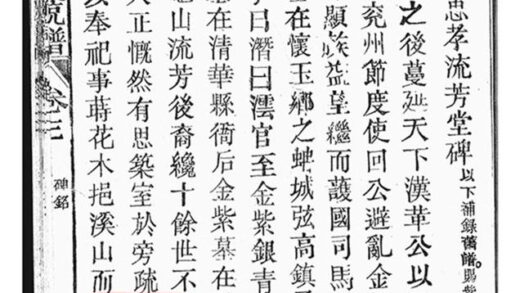 忠孝流芳堂碑以下補錄舊譜
之後蔓延天下漢華公以
兗州節度使回公避亂金
顯族益望繼而護國司馬
在懷玉鄉之蚺城弦高鎮
曰潛曰澐官至金紫銀青
在清華縣衙后金紫墓在
山流芳後裔纔十餘世不
正慨然有思築室於旁疏
奉祀事蒔花木挹溪山而
譜 卷 碑銘